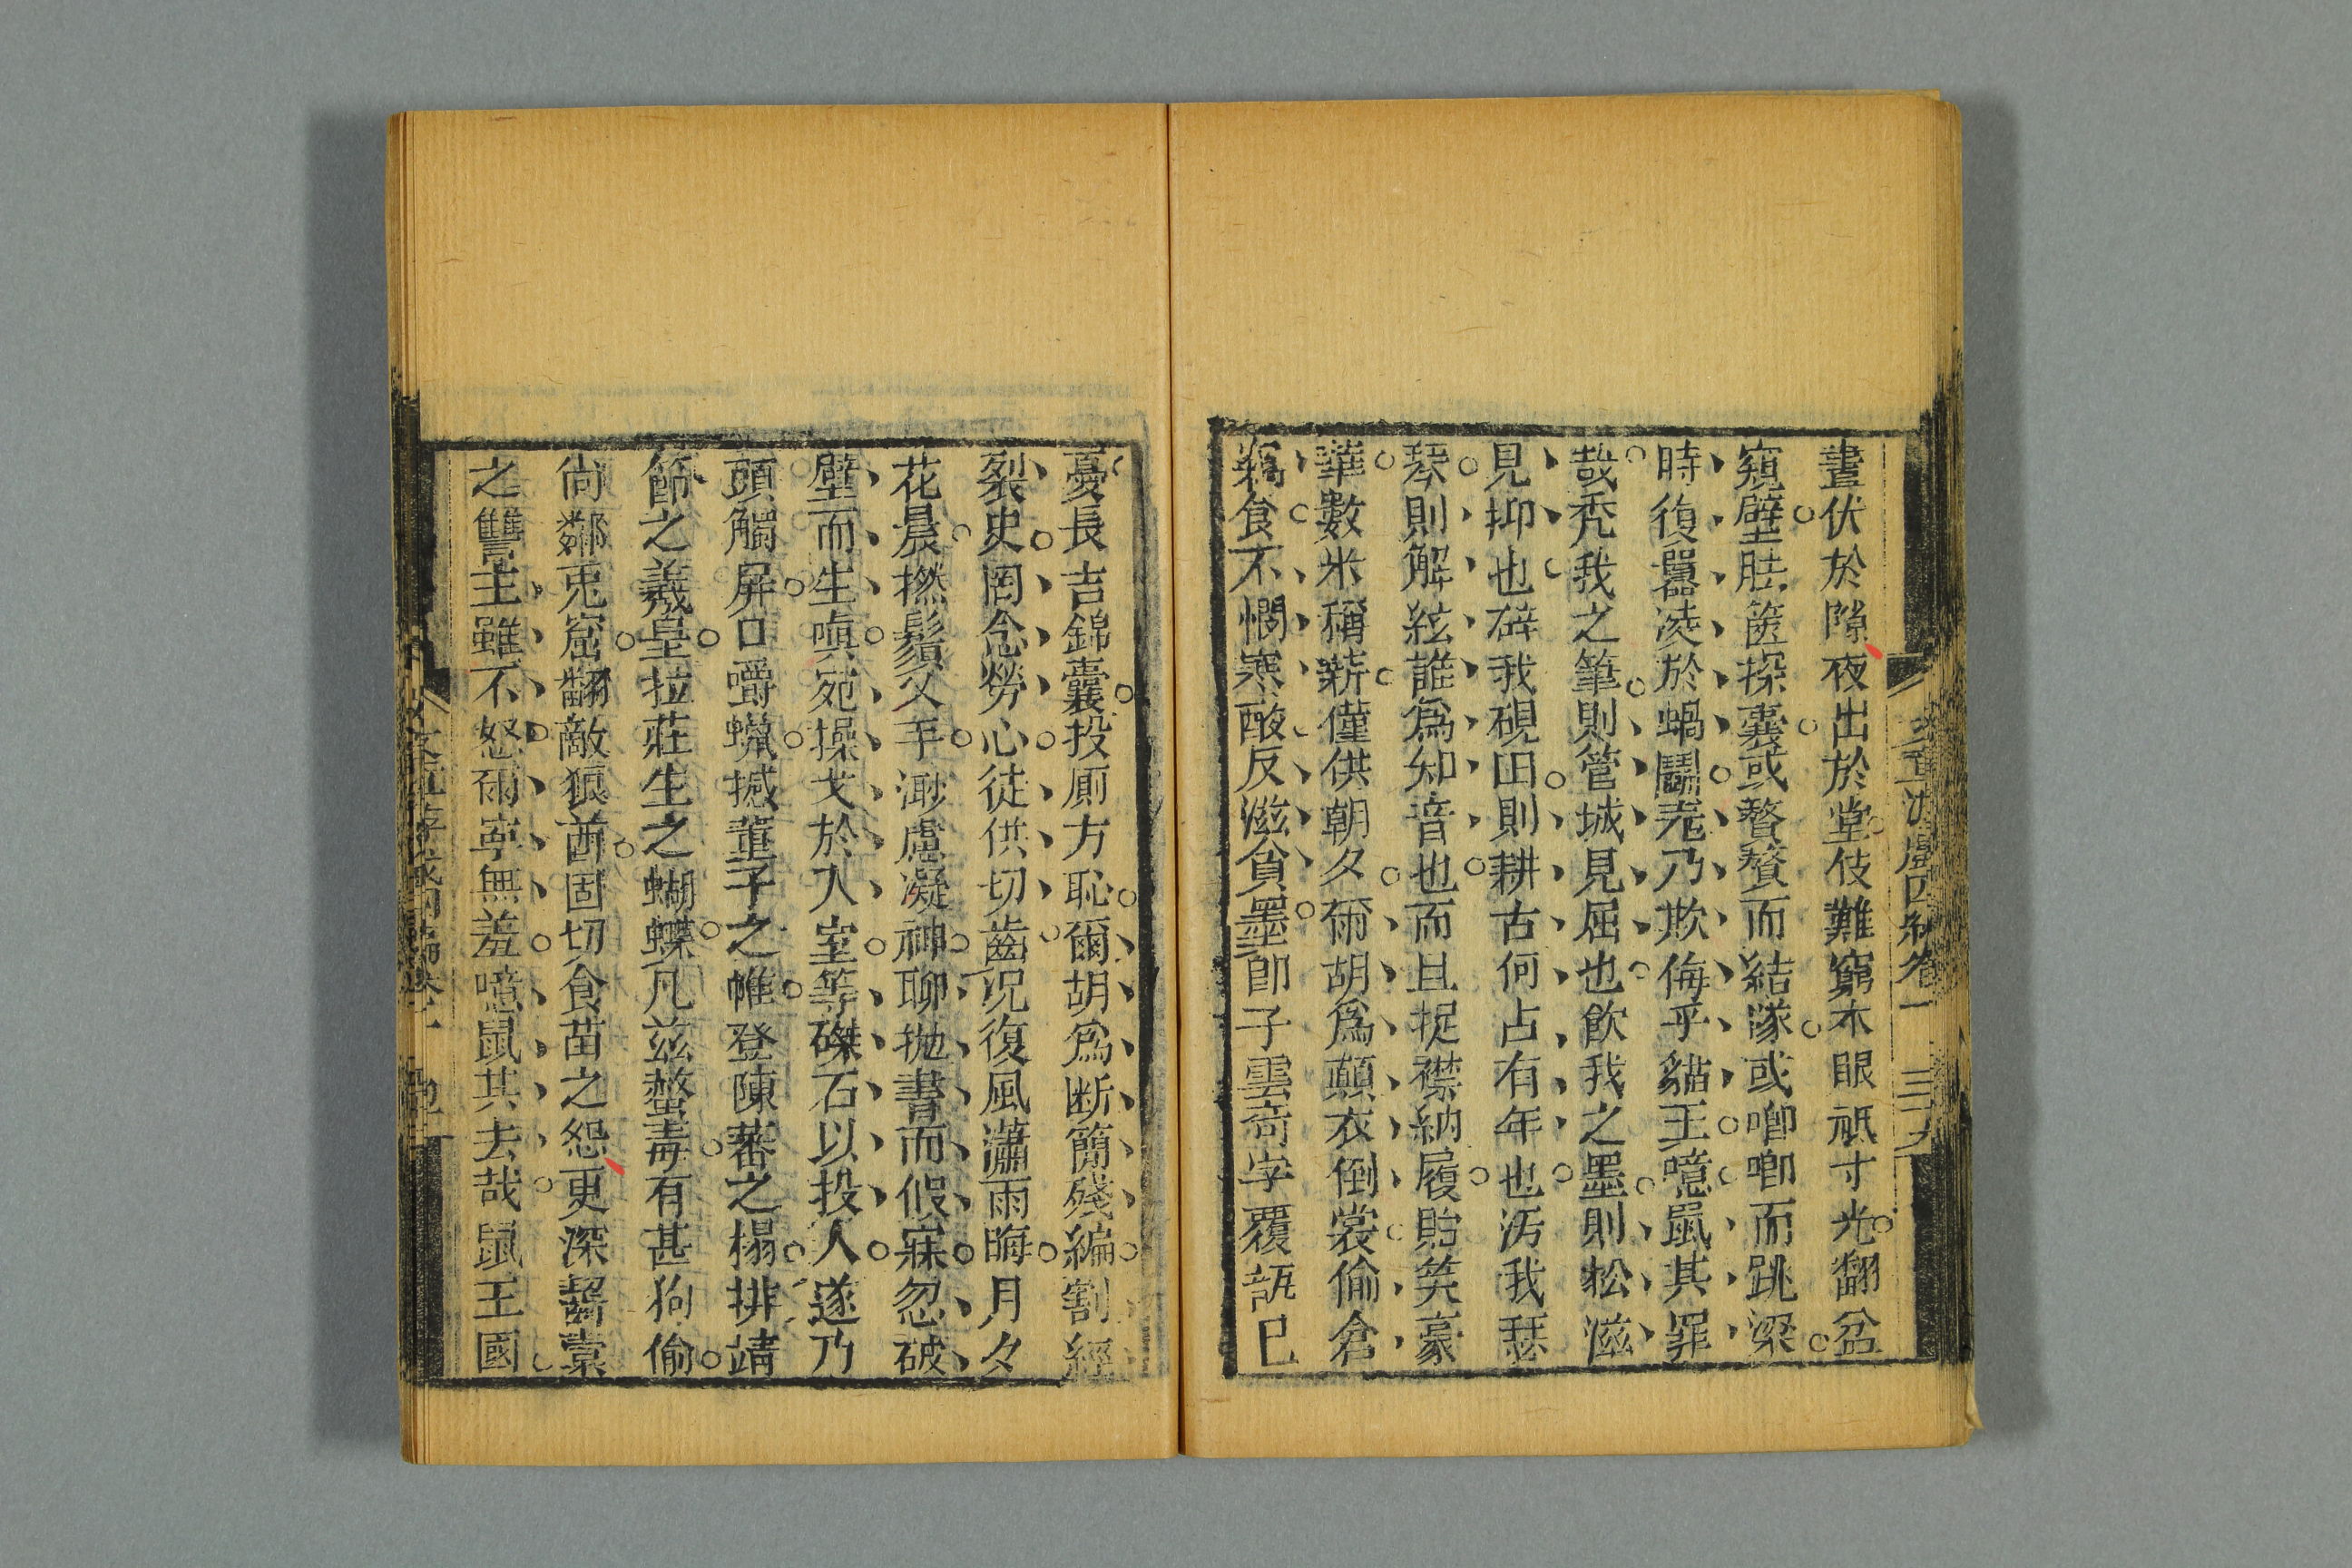 晝伏於隙夜出於堂伎難窮木眼祇寸光翻盆
窺壁胠篋探囊或贅贅而結隊或喞喞而跳梁
時復囂凌於蝸鬬老乃欺侮乎貓王噫鼠其罪
哉禿我之筆則管城見屈也飲我之墨則松滋
見抑也碎我硯田則耕古何占有年也污我瑟
琴則解絃誰爲知音也而且捉襟納履貽笑豪
華數米稱薪僅供朝夕爾胡爲顛衣倒裳偷倉
竊食不憫寒酸反滋貪墨卽子雲奇字覆瓿已
憂長吉錦囊投厠方恥爾胡爲断簡殘編割經
裂史罔念勞心徒供切齒况復風瀟雨晦月夕
花晨撚鬚乂手澈慮凝神聊抛書而假寐忽破
壁而生嗔宛操戈於入室等磔石以投人遂乃
頭觸屏口嚼蠟撼董子之帷登陳蕃之榻排靖
節之羲皇拉莊生之蝴蝶凡兹螫毒有甚狗偷
尙鄰兎窟翻敵狼酋固切食苗之怨更深齧橐
之讐王雖不怒爾寧無羞噫鼠其去哉鼠王國